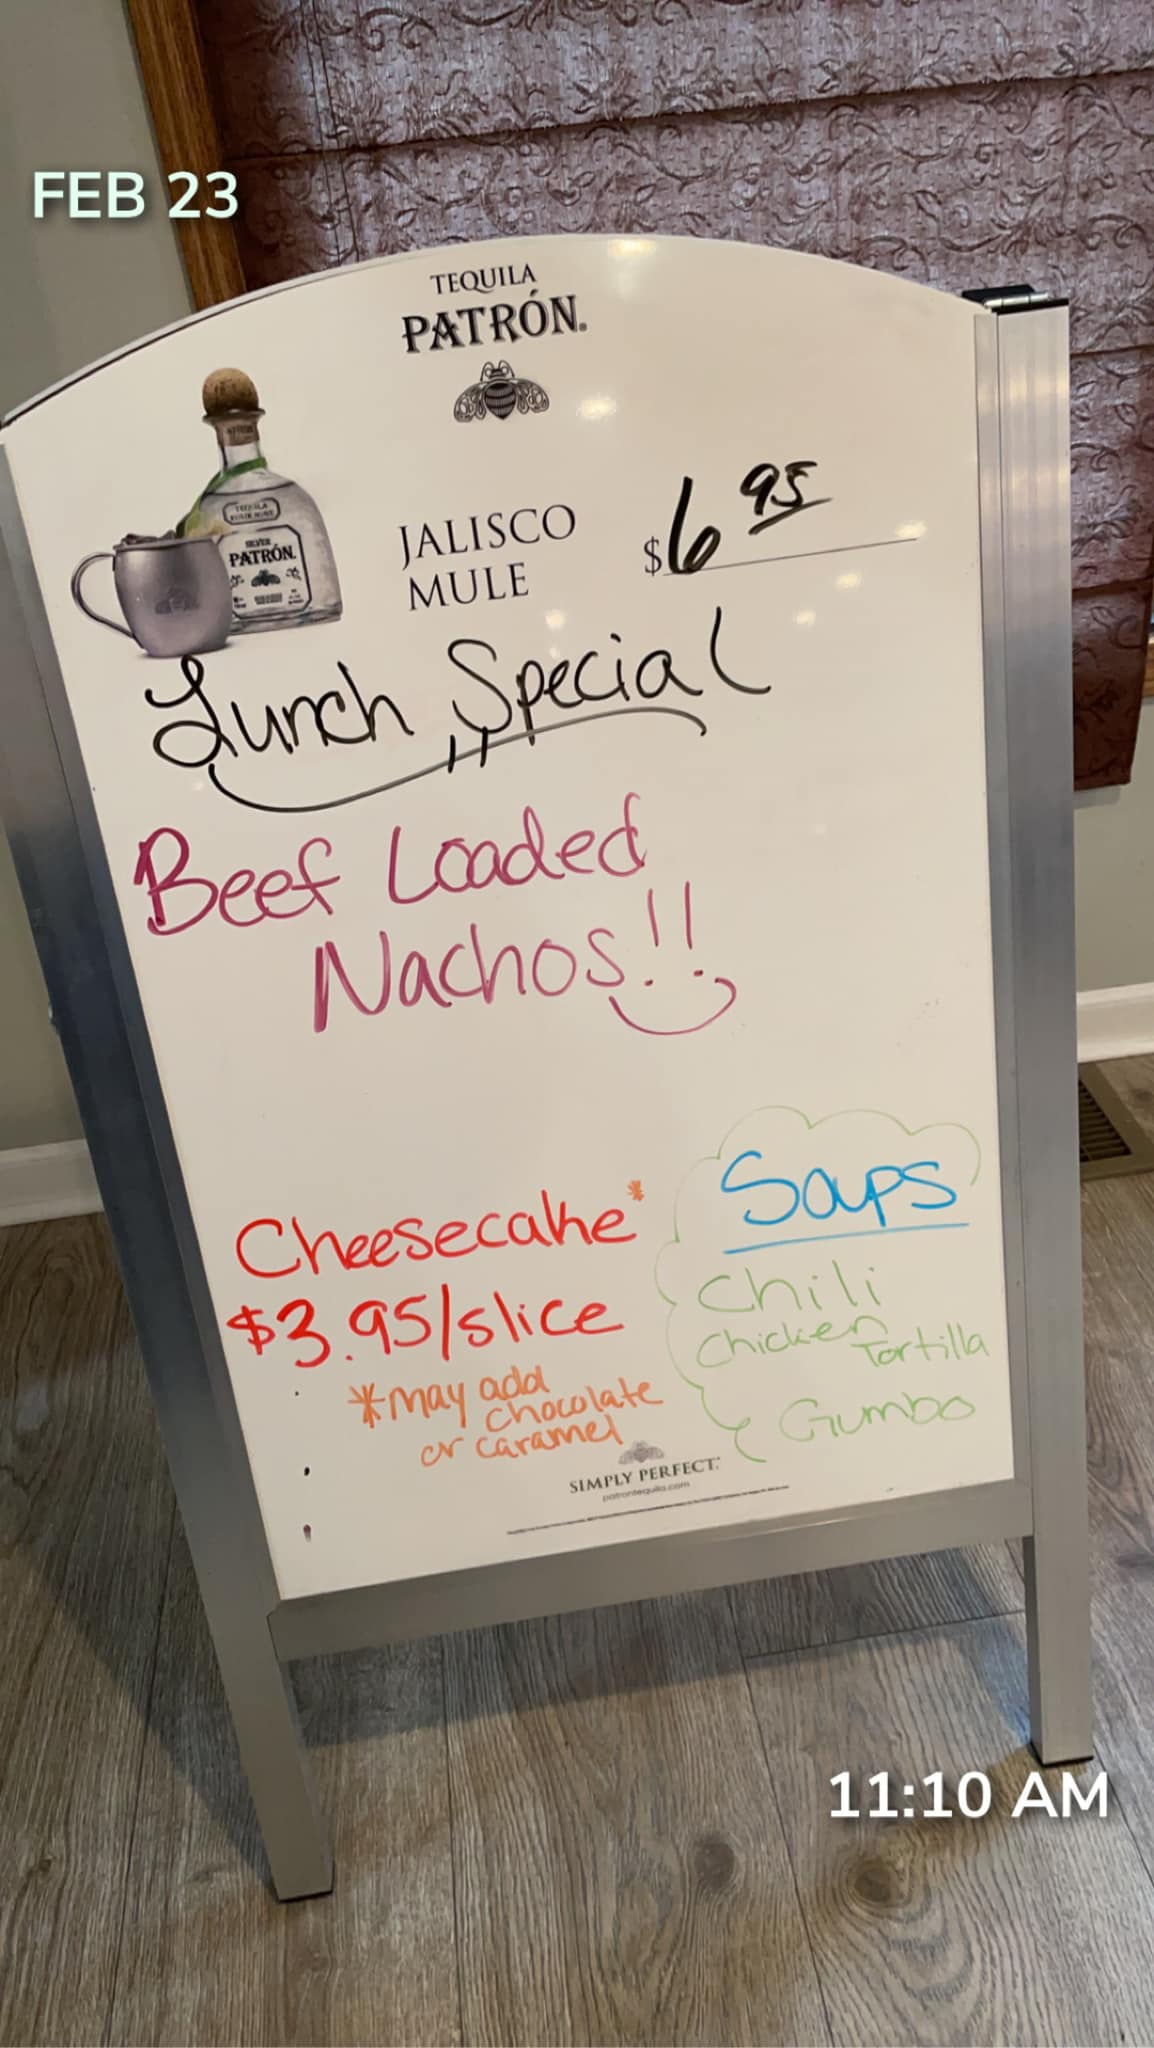 FEB 23
TEQUILA
PATRÓN.
JALISCO
MULE
$6 95
SILVER
PATRÓN.
Lunch Special
Beef Loaded
Nachos!!
Cheesecake*
$3.95/slice
*may add
chocolate
or caramel
Soups
Chili
Chicken
Tortilla
Gumbo
SIMPLY PERFECT.
patrontequila.com
11:10 AM